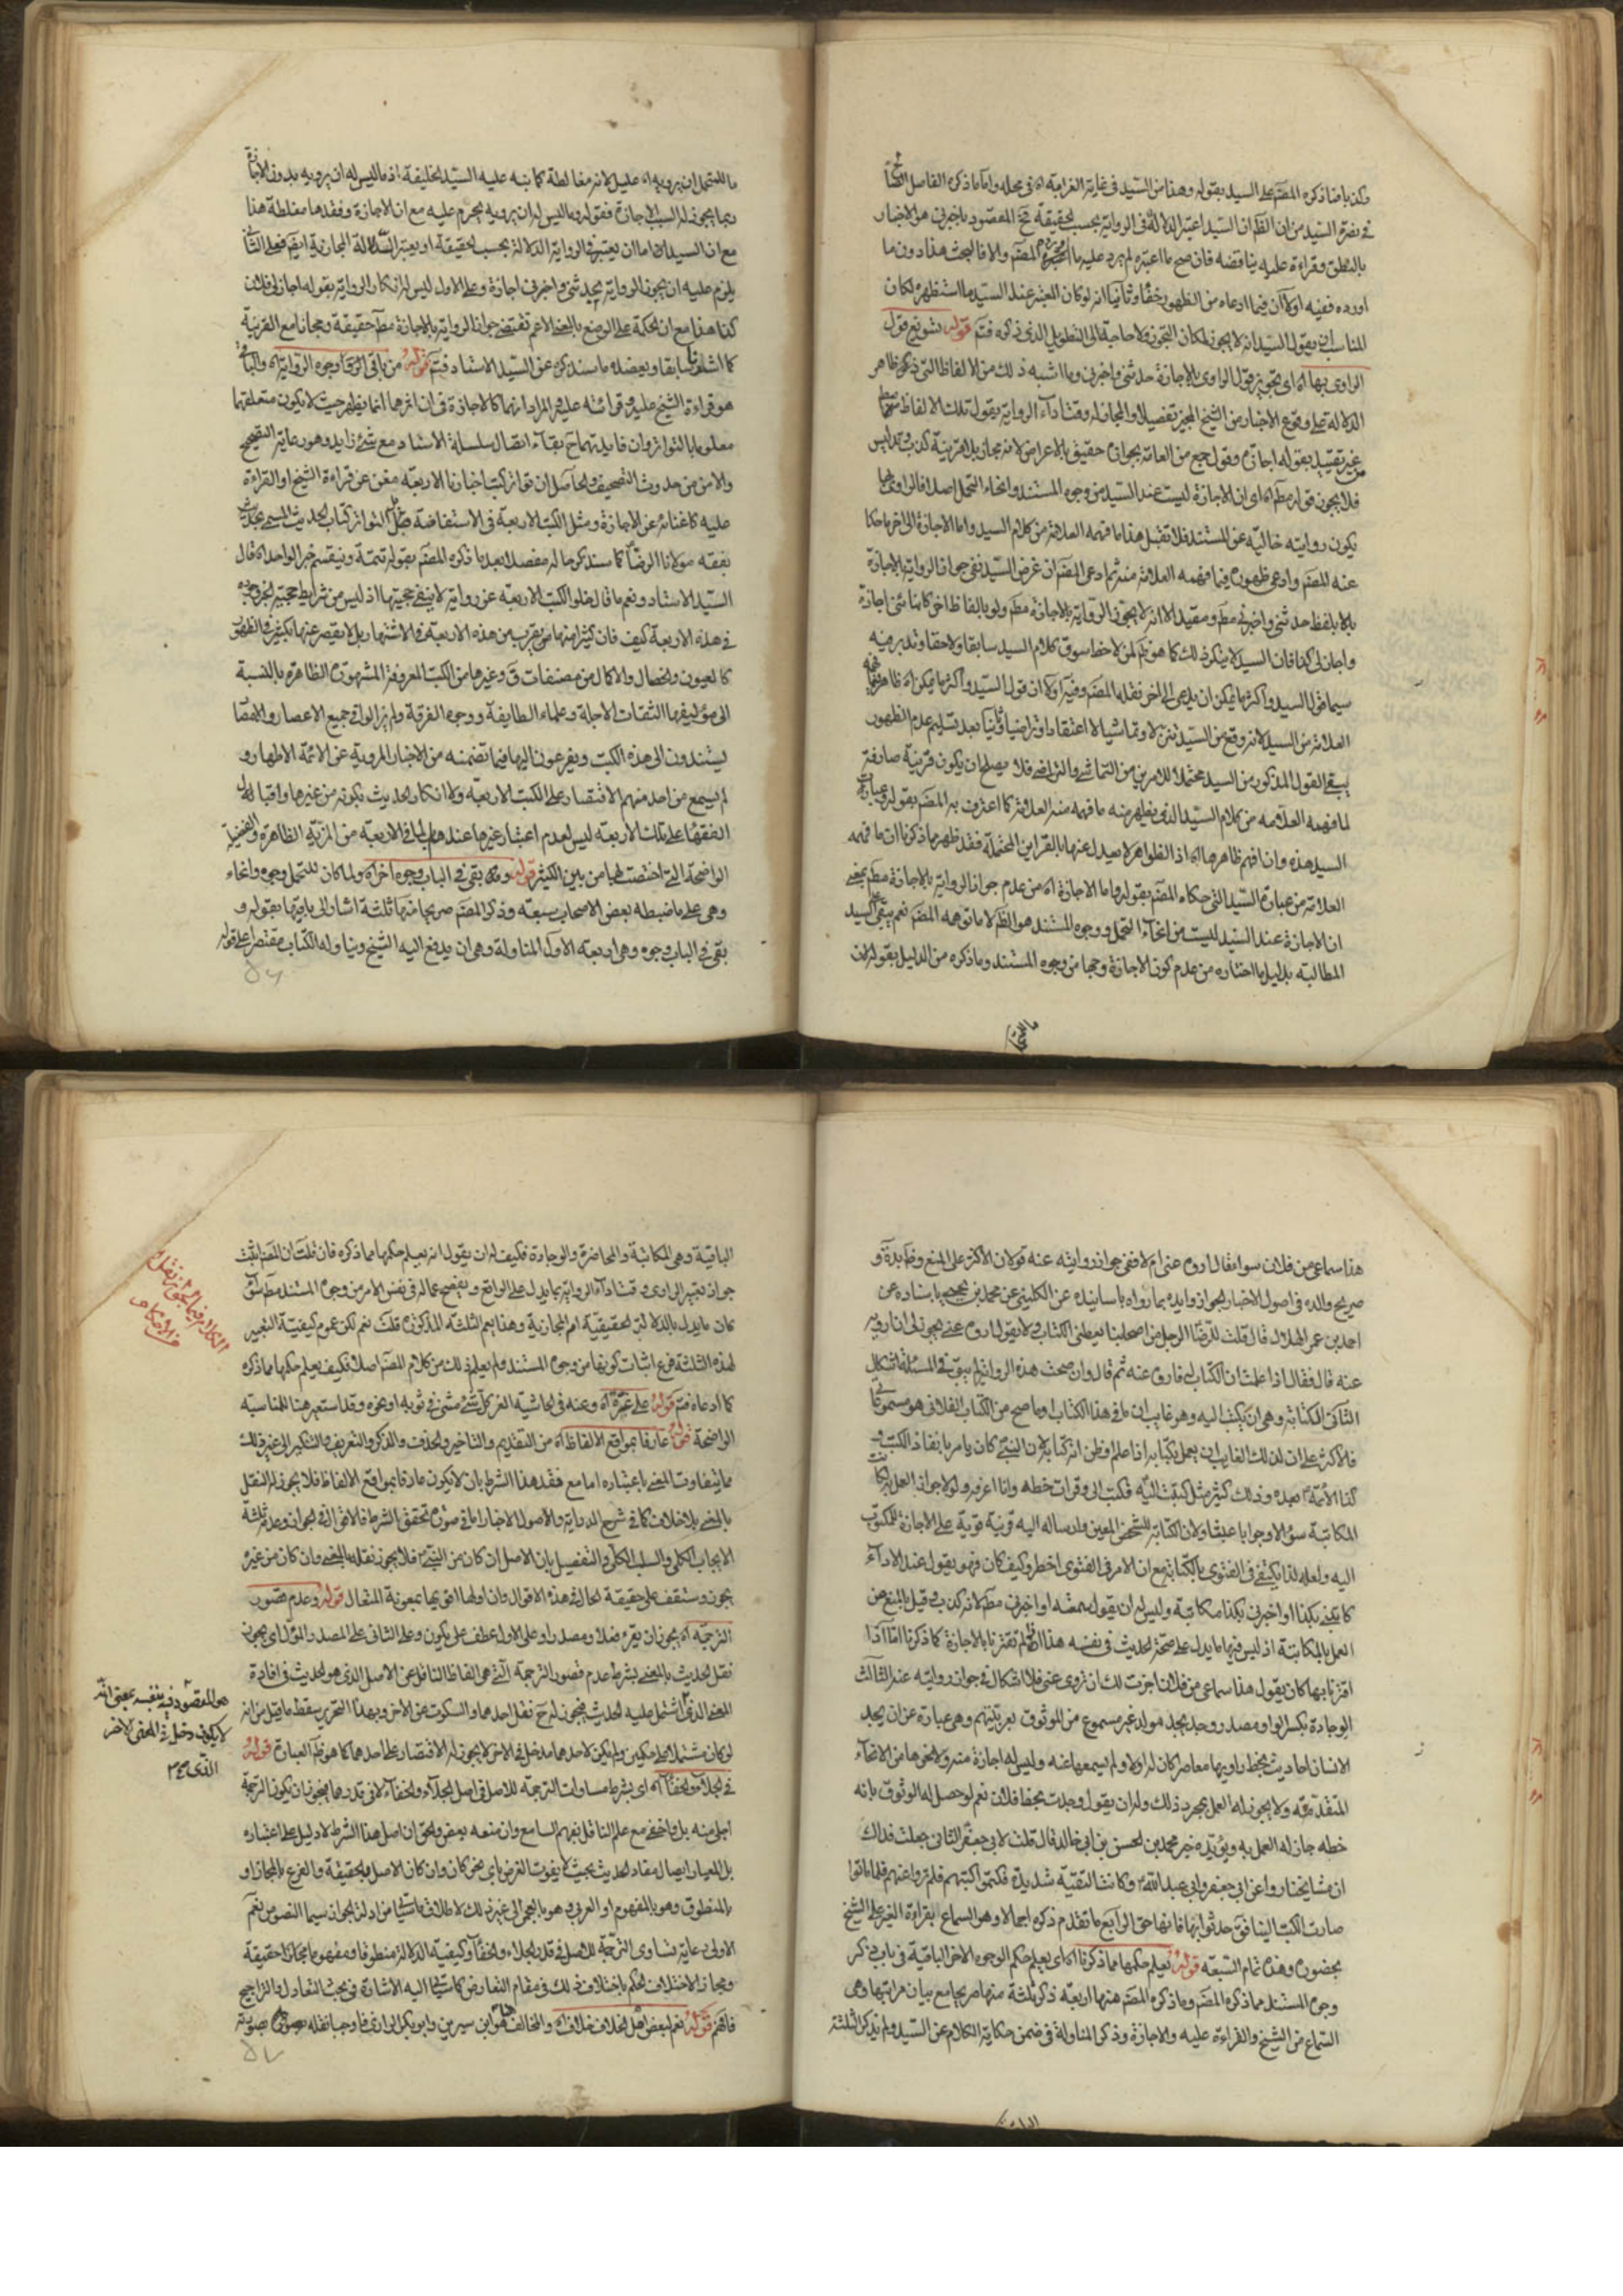 وكذا ما ذكره المصنف على السيد بقوله وهذا من السيد في غاية الغرابة اه في محله واما ما ذكره الفاضل
في نصرة السيد من ان الظ ان السيد اعتبر الدلالة في الرواية بحسب الحقيقة المقصود باخبرني هو الاخبار
بالنطق وقراءة عليه يناقضه فان صح ما اعتبره لم يرد عليه ما المصنف والا فالبحث هذا دون ما
اورده ففيه اولا ان فيما ادعاه من الظهور خفاء وثانيا انه لو كان المعتبر عند السيد ما استظهره لكان
المناسب ان يقول السيد انه لا يجوز لمكان التجوز ولا حاجة الى التطويل الذي ذكره فتم قوله تسويغ قول
الراوي بها اه اي تجويز قول الراوي بالاجازة حدثني واخبرني وما اشبه ذلك من الالفاظ التي ظاهر
الدلالة على وقوع الاخبار من الشيخ المجيز تفصيلا والمجاز له وقت اداء الرواية بقول تلك الالفاظ
غير تقييد بقوله اجازة وقول جمع من العامة بجوازه حقيق بالاعراض لانه مجاز بلا قرينة كذب وتدليس
فلا يجوز قوله مطم اه اي ان الاجازة ليست عند السيد من وجوه المستند وانحاء التحمل اصلا فالراوي بها
يكون روايته خالية عن المستند فلا تقبل هذا ما فهمه العلامة من كلام السيد واما الاجازة الى اخر ما حكا
عنه المصنف وادعى ظهوره فيما فهمه العلامة منه ثم ادعى المصنف ان غرض السيد نفي جواز الرواية بالاجازة
بالا بلفظ حدثني واخبرني مطم ومقيدا لا انه لا يجوز الرواية بالاجازة مطم ولو بالفاظ اخر كانبأني اجازة
واجاز لي كذا فان السيد لا ينكر ذلك كما هو ظم لمن لاحظ سوق كلام السيد سابقا ولاحقا وتدبر فيه
سيما قول السيد واكثر ما يمكن ان يدعى الى اخر نقله المصنف وفيه اولا ان قول السيد واكثر ما يمكن اه ظاهر
العلامة من السيد لانه وقع من السيد تنزلا وتماشيا لا اعتقادا وتراضيا وثانيا بعد تسليم عدم الظهور
يبقى القول المذكور من السيد محتملا للامرين من التماشي والتراضي فلا يصلح ان يكون قرينة صارفة
لما فهمه العلامة من كلام السيد الذي يظهر منه ما فهمه منه العلامة كما اعترف به المصنف بقوله وعبارة
السيد هذه وان افهم ظاهرها اه اذ الظواهر لا يعدل عنها بالقراين المحتملة فقد ظهر مما ذكرنا ان ما فهمه
العلامة من عبارة السيد التي حكاه المصنف بقوله واما الاجازة اه من عدم جواز الرواية بالاجازة مطم بمعنى
ان الاجازة عند السيد ليست من انحاء التحمل ووجوه المستند هو الظم لا ما توهمه المصنف نعم يبقى على السيد
المطالبة بدليل ما اختاره من عدم كون الاجازة وجها من وجوه المستند وما ذكره من الدليل بقوله لان
ما للمتحمل ان يرويه اه عليل لانه مغالطة كما نبه عليه السيد الخليفة اذ ما ليس له ان يرويه بدون الاجازة
ربما يجوز له السبب الاجازة فقوله وما ليس له ان يرويه يحرم عليه مع ان الاجازة وفقدها مغلطة هذا
مع ان السيد لا اما ان يعتبر في الرواية الدلالة بحسب الحقيقة او يعتبر الدلالة المجازية ايضم فعلى الثاني
يلزم عليه ان يجوز الرواية بحدثني واخبرني اجازة وعلى الاول ليس له انكار الرواية بقوله اجاز لي فلان
كذا هذا مع ان الحكمة على الوضع بالمعنى الاعم تقتضي جواز الرواية بالاجازة مطم حقيقة ومجازا مع القرينة
كما اشلفنا سابقا ويعضده ما سنذكره عن السيد الاستاد فتم قوله من باقي وجوه الرواية اه والباقي
هو قراءة الشيخ عليه وقرائته على المراد انهما كالاجازة في ان اثرهما انما يظهر حيث لا يكون متعلقها
معلوما بالتواتر وان فايدتهما ح بقاء اتصال سلسلة الاسناد مع شيء زايد وهو رعاية التصحيح
والامن من حدوث التصحيف والحاصل ان تواتر كتب اخبارنا الاربعة مغن عن قراءة الشيخ او القراءة
عليه كاغنائه عن الاجازة ومثل الكتب الاربعة في الاستفاضة التواتر كتاب الحديث المسمى
بفقه مولانا الرضا كما سنذكر حاله مفصلا بعد ما ذكره المصنف بقوله تتمة وينقسم خبر الواحد اه قال
السيد الاستاد ونعم ما قال خلو الكتب الاربعة عن رواية لا ينفي حجيتها اذ ليس من شرايط حجية الخبر وجوده
في هذه الاربعة كيف فان كثيرا منها من يقرب من هذه الاربعة في الاشتهار بل لا يقصر عنها بكثير في الظهور
كالعيون والخصال والاكمال من مصنفات ق وغيرها من الكتب المعروفة المشهورة الظاهرة بالنسبة
الى مؤلفيها الثقات الاجلة وعلماء الطايفة ووجوه الفرقة ولم يزالوا في جميع الاعصار والامصار
يستندون الى هذه الكتب ويفزعون اليها فيما تضمنه من الاخبار المروية عن الائمة الاطهار و
لم يسمع من احد منهم الاقتصار على الكتب الاربعة ولا انكار الحديث بكونه من غيرها واقبال
الفقهاء على تلك الاربعة ليس لعدم اعتبار غيرها عندهم بل لما في الاربعة من المزية الظاهرة والفضيلة
الواضحة التي اختصت لها من بين الكثير قوله بقي في الباب وجوه اخر اه ولما كان للتحمل وجوه وانحاء
وهي على ما ضبطه بعض الاصحاب سبعة وذكر المصنف صريحا منها ثلثة اشار الى باقيها بقوله و
بقي في الباب وجوه وهي اربعة الاول المناولة وهي ان يدفع اليه الشيخ ويناوله الكتاب مقتصرا على قوله
هذا سماعي من فلان سواء قال اروه عني ام لا ففي جواز روايته عنه قولان الاكثر على المنع وظ البداية و
صريح والده في اصول الاخبار الجواز وايده بما رواه باسانيده عن الكليني عن محمد بن يحيى باسناده عن
احمد بن عمر الحلال قال قلت للرضا الرجل من اصحابنا يعطيني الكتاب ولا يقول اروه عني يجوز لي ان ارويه
عنه قال فقال اذا علمت ان الكتاب له فاروه عنه ثم قال وان صحت هذه الرواية لم يبق في المسئلة اشكال
الثاني الكتابة وهي ان يكتب اليه وهو غايب ان ما في هذا الكتاب او ما صح من الكتاب الفلاني هو مسموعي
فالاكثر على ان لذلك الغايب ان يعمل بكتابه اذا علم او ظن انه كتابه لان النبي كان يامر بانفاذ الكتب و
كذا الائمة بعده وذلك كثير مثل كتبت اليه فكتب الي وقرات خطه وانا اعرفه ولولا جواز العمل لكانت
المكاتبة سؤالا وجوابا عبثا ولان الكتابة للشخص المعين وارساله اليه قرينة قوية على الاجازة للمكتوب
اليه ولعله لذا يكتفى في الفتوى بالكتابة مع ان الامر في الفتوى اخطر وكيف كان فهو يقول عند الاداء
كاتبني بكذا او اخبرني بكذا مكاتبة وليس له ان يقول سمعته او اخبرني مطم لانه كذب وقيل بالمنع من
العمل بالمكاتبة اذ ليس فيها ما يدل على صحة الحديث في نفسه هذا لم تقترنا بالاجازة كما ذكرنا اما اذا
اقترنا بها كان يقول هذا سماعي من فلان اجزت لك ان تروي عني فلا اشكال في جواز روايته عنه الثالث
الوجادة بكسر الواو مصدر وجد يجد مولد غير مسموع من الموثوق بعربيتهم وهي عبارة عن ان يجد
الانسان احاديث بخط راويها معاصرا كان له اولا ولم يسمعها عنه وليس له اجازة منه ولا نحوها من الانحاء
المتقدمة ولا يجوز له العمل بمجرد ذلك وله ان يقول وجدت بخط فلان نعم لو حصل له الوثوق بانه
خطه جاز له العمل به ويؤيده خبر محمد بن الحسن بن ابي خالد قال قلت لابي جعفر الثاني جعلت فداك
ان مشايخنا رووا عن ابي جعفر وابي عبد الله وكانت التقية شديدة فكتموا كتبهم فلم تروا عنهم فلما ماتوا
صارت الكتب الينا فق حدثوا بها فانها حق الرابع ما تقدم ذكره اجمالا وهو السماع بقراءة الغير على الشيخ
بحضوره وهذه تمام السبعة قوله يعلم حكمها مما ذكرنا اه اي يعلم حكم الوجوه الاخر الباقية في باب ذكر
وجوه المستند مما ذكره المصنف وما ذكره المصنف منها اربعة ذكر ثلثة منها صريحا مع بيان مراتبها وهي
السماع من الشيخ والقراءة عليه والاجازة وذكر المناولة في ضمن حكاية الكلام عن السيد ولم يذكر الثلثة
الباقية وهي المكاتبة والمحاضرة والوجادة فكيف له ان يقول انه يعلم حكمها مما ذكره فان قلت ان المصنف اثبت
جواز تعبير الراوي وقت اداء الرواية بما يدل على الواقع ويفصح عما له في نفس الامر من وجوه المستند مطم سواء
كان ما يدل بالدلالة الحقيقية ام المجازية وهذا يعم الثلثة المذكورة قلت نعم لكن عموم كيفية التعبير
لهذه الثلثة فرع اثبات كونها من وجوه المستند ولم يعلم ذلك من كلام المصنف اصلا فكيف يعلم حكمها مما ذكره
كما ادعاه فتم قوله على غره اه وعنه في الحاشية الغر كل شيء مثنى في ثوب او نحوه وقد استعير هنا للمناسبة
الواضحة قوله عارفا بمواقع الالفاظ اه من التقديم والتاخير والحذف والذكر والتعريف والتنكير الى غير ذلك
مما يتفاوت المعنى باعتباره اما مع فقد هذا الشرط بان لا يكون عارفا بمواقع الالفاظ فلا يجوز له النقل
بالمعنى بلا خلاف كما في شرح الدراية والاصول الاخبار اما في صورة تحقق الشرط فالاقوال في الجواز وعدمه ثلثة
الايجاب الكلي والسلب الكلي والتفصيل بان الاصل ان كان من النبي فلا يجوز نقله بالمعنى وان كان من غيره
يجوز وستقف على حقيقة الحال في هذه الاقوال وان اولها اقويها بمعونة المتعال قوله وعدم قصور
الترجمة اه يجوز ان يقرء فعلا ومصدرا وعلى الاول عطف على يكون وعلى الثاني على المصدر المؤول اي يجوز
نقل الحديث بالمعنى بشرط عدم قصور الترجمة التي هي الفاظ الناقل عن الاصل الذي هو الحديث في افادة
المعنى الذي اشتمل عليه الحديث فيجوز له ح نقل احدهما والسكوت عن الاخر وبهذا التحرير سقط ما قيل من انه
لو كان مشتملا على حكمين ولم يكن لاحدهما مدخل في الاخر لا يجوز له الاقتصار على احدهما كما هو ظم العبارة قوله
في الجلاء والخفاء اه اي بشرط مساوات الترجمة للاصل في اصل الجلاء والخفاء لا في قدرهما فيجوز ان يكون الترجمة
اجلى منه بل واخفى مع علم الناقل بفهم السامع وان منعه بعض والحق ان اصل هذا الشرط لا دليل على اعتباره
بل المعيار ايصال مفاد الحديث بحيث لا يفوت الغرض باي نحو كان وان كان الاصل بالحقيقة والفرع بالمجاز او
بالمنطوق وهو بالمفهوم او العربي وهو بالعجمي الى غير ذلك لاطلاق ما سياتي من ادلة الجواز سيما النصوص نعم
الاولى رعاية تساوي الترجمة للاصل في قدر الجلاء والخفاء وكيفية الدلالة منطوقا ومفهوما مجازا حقيقة
ومجازا لاختلاف الحكم باختلاف ذلك في مقام التعارض كما سياتي اليه الاشارة في بحث التعادل والتراجيح
فافهم قوله نعم لبعض اهل الخلاف خلاف اه والمخالف هو ابن سيرين وابو بكر الرازي فاوجبا نقله صورته
الكلام فيما يجوز نقل
هو المقصود في نفسه بمعنى انه
لا يكون دخل في المعنى الاخر